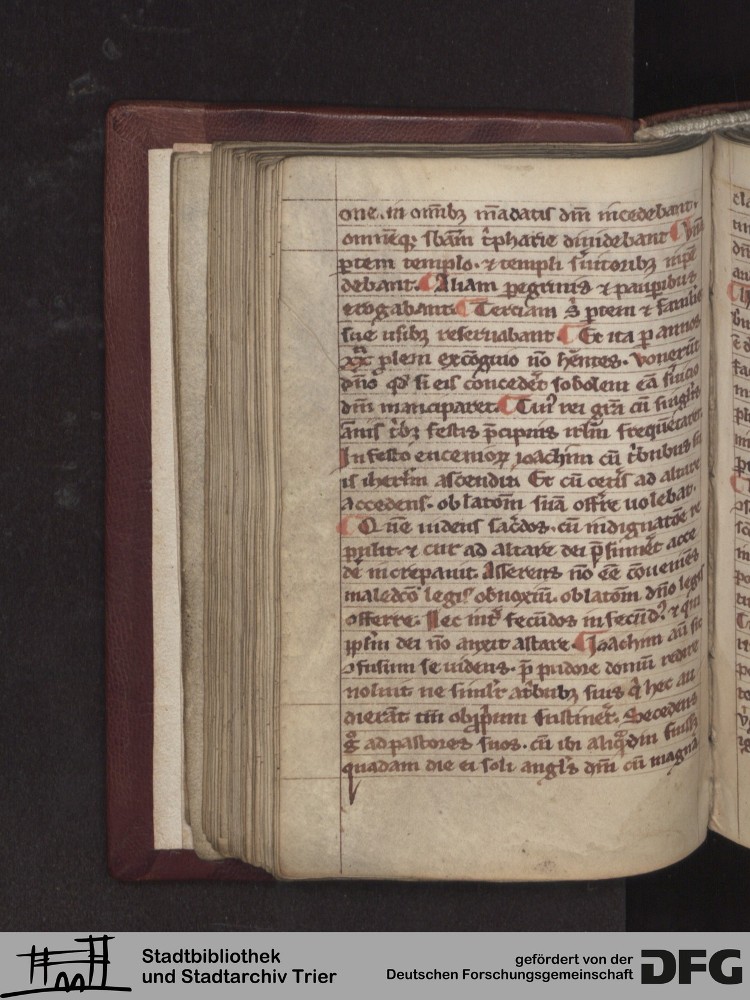 one. in om̄ibꝫ mādatis dn̄i incedebant.
omnēqꝫ sb̄am t͛pharie diuidebant Vnā
ꝑtem templo. ⁊ templi s͛uitoribꝫ inpē
debant. Aliam ꝑegrinis ⁊ paupibus
erogabant. Terciam s̄ ꝑtem ⁊ familie
sue usibꝫ reseruabant. Et ita ꝑ annos
xx ꝓlem ex ꝯiuguio nō hn̄tes. uouerūt
dn̄o qđ si eis concedet͛ sobolem eā s͛uicio
dn̄i manciparet. Cui᷒ rei gr̄a cū singlis
ānis t͛bꝫ festis p̄cipuis irlm̄ frequētarent
In festo encenioꝝ ioachim cū t͛bulibus su
is iherlm̄ ascendit Et cū cet͛is ad altare
accedens. oblatōm suā offr͛e uolebat.
Quē uidens sac͛dos. cū indignatōe re
ppulit ⁊ cur ad altare dei p̄sumet͛ acce
de͛ increpauit. Asserens nō eē ꝯueniēs
maledc̄o legis obnoxiū. oblatōm dn̄o legis
offerre. Nec int͛ fecūdos infecūd᷒. ⁊ qui
ipl̄m dei nō auxit astare. Joachim aūt sic
ꝯfusum se uidens. p̄ pudore domū redire
noluit ne simil͛r at͛bulibꝫ suis q̄ hec au
dierāt tm̄ obp̄prium sustinet͛. Secedens
gͦ ad pastores suos. cū ibi aliqͣdiu fuiss̄
quadam die ei soli angl̄s dn̄i cū magna
Stadtbibliothek
und Stadtarchiv Trier
gefördert von der
Deutschen Forschungsgemeinschaft
DFG